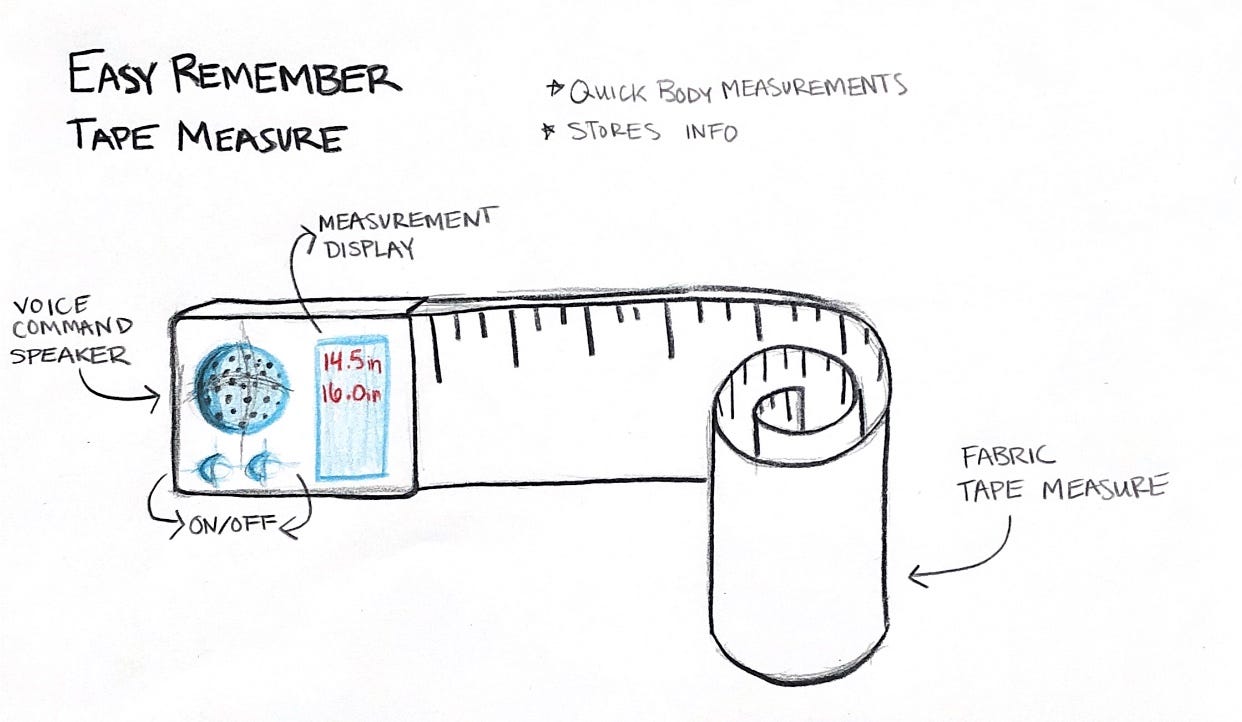 EASY REMEMBER
TAPE MEASURE
QUICK BODY MEASUREMENTS
STORES INFO
MEASUREMENT
DISPLAY
VOICE
COMMAND
SPEAKER
14.5in
16.0in
ON/OFF
FABRIC
TAPE MEASURE